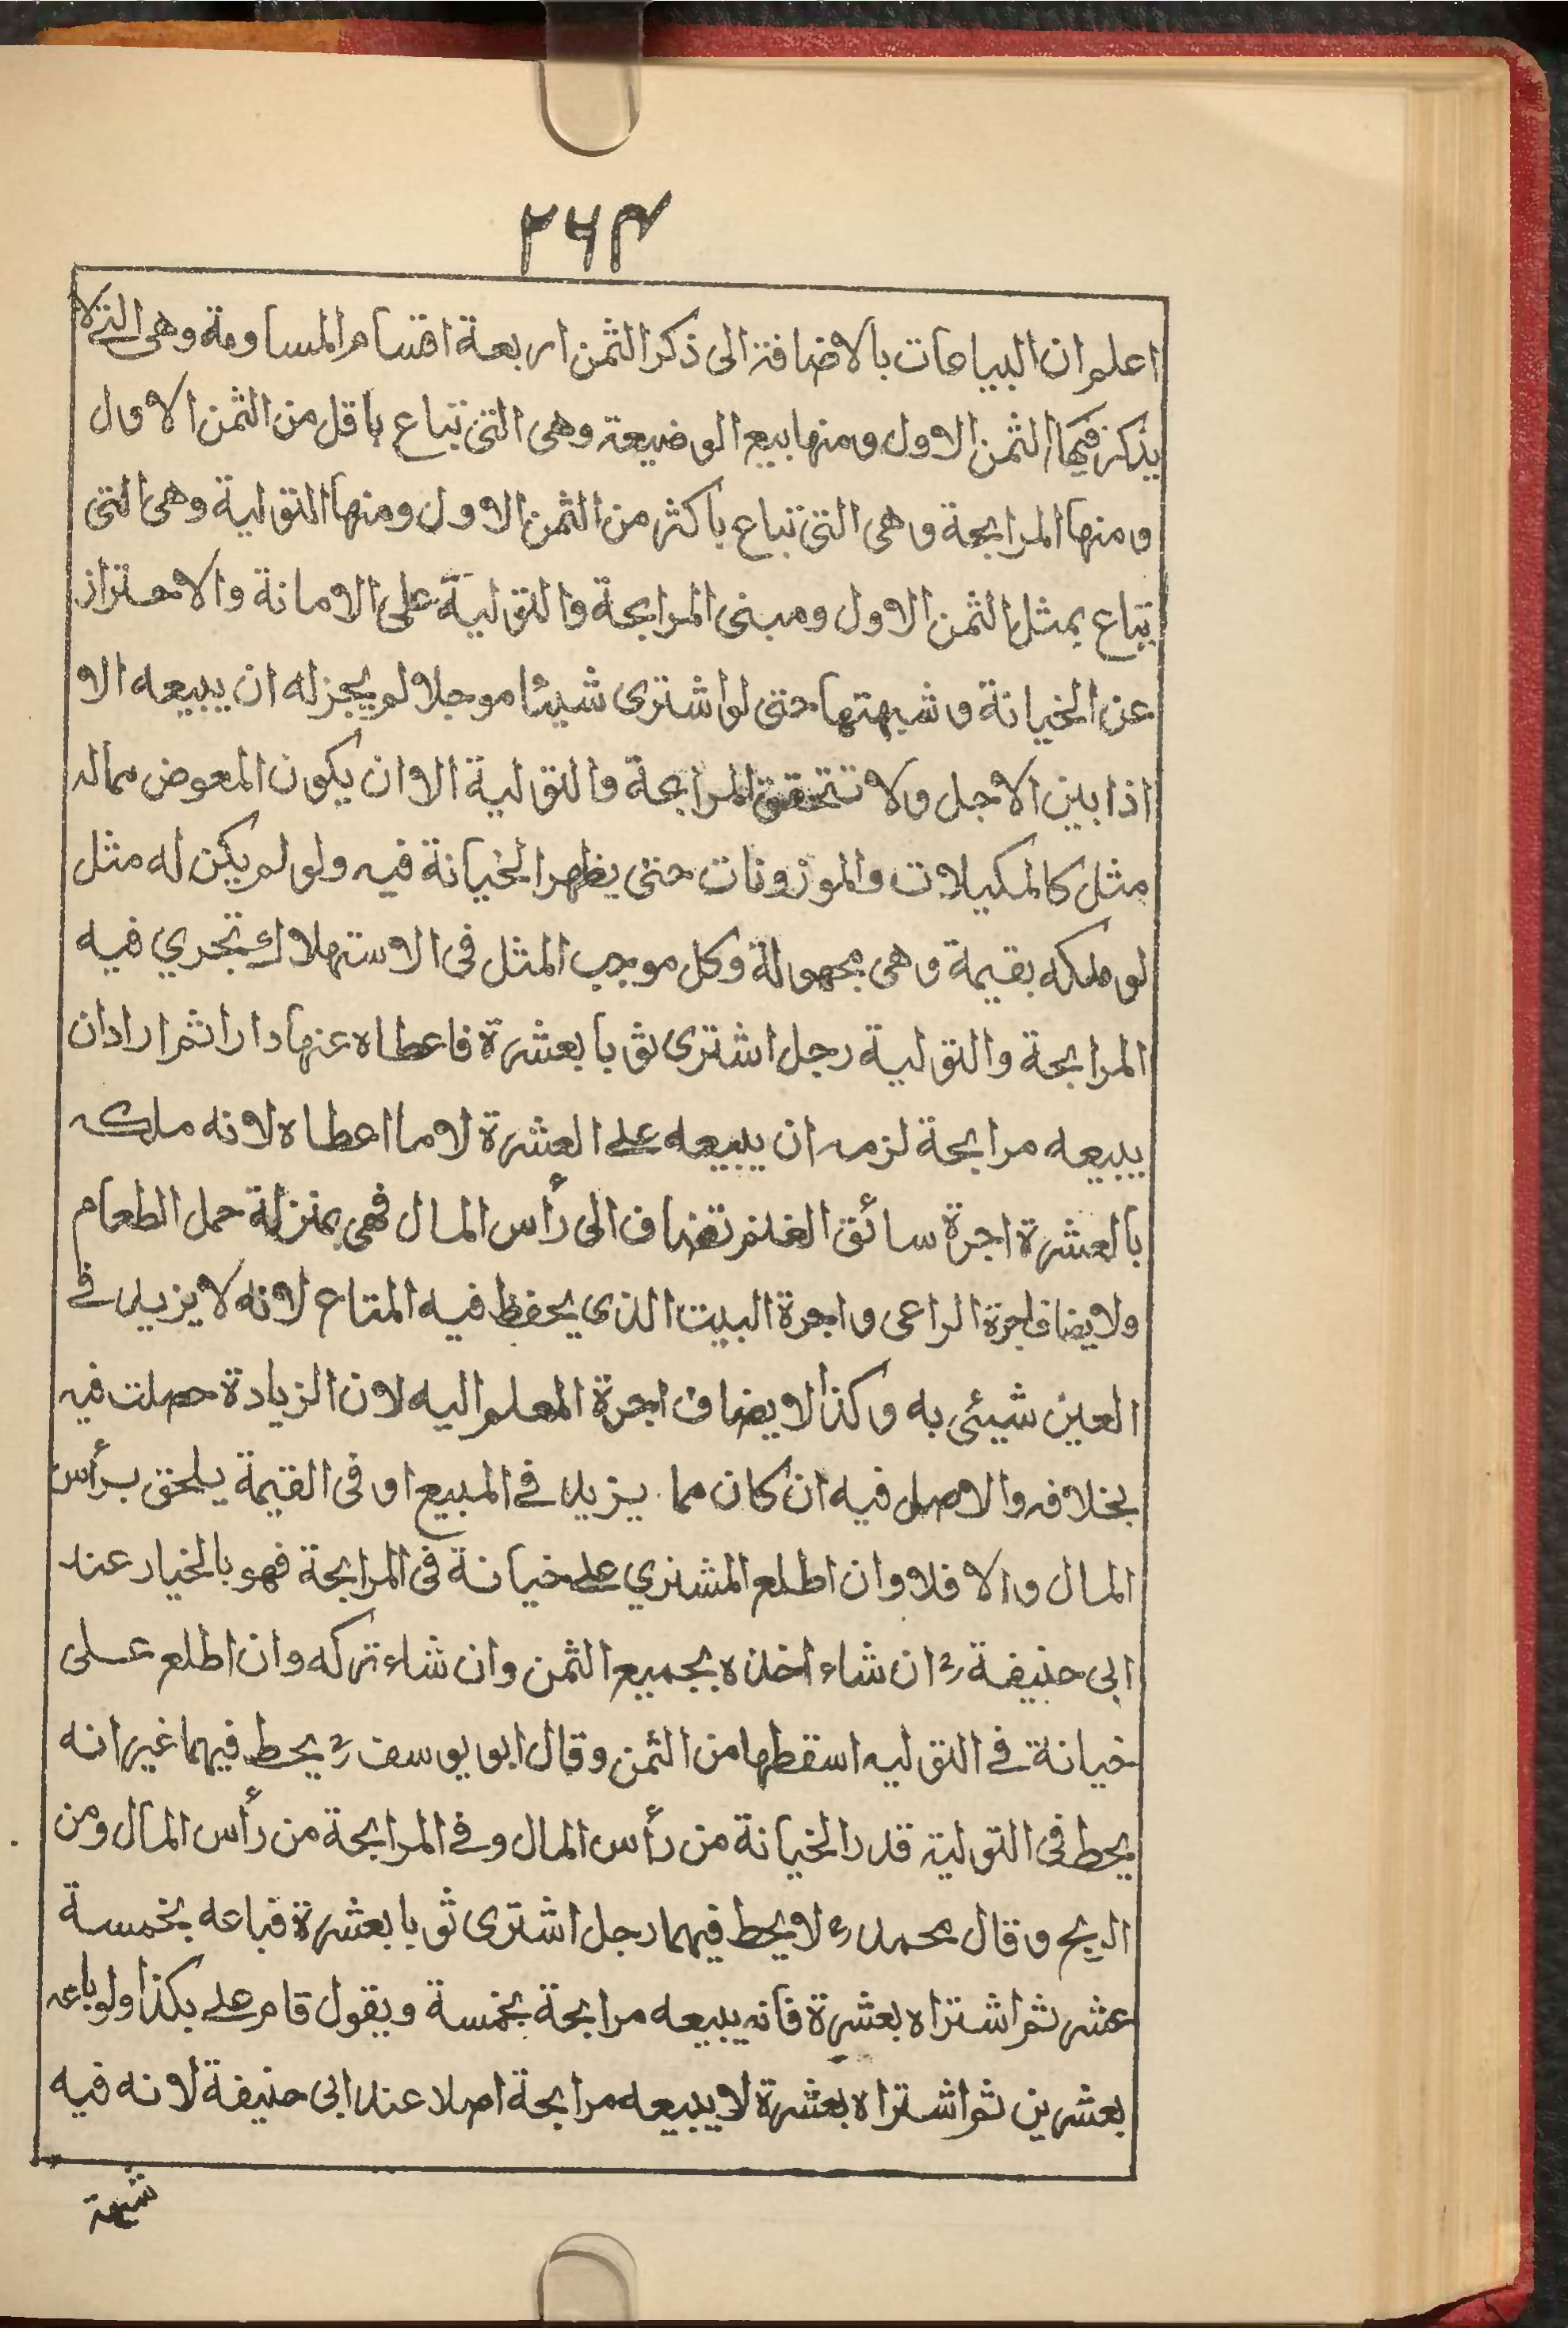 ٢٦٣
اعلم ان البياعات بالاضافة الى ذكر الثمن اربعة اقسام المساومة وهى التى لا
يذكر فيها الثمن الاول ومنها بيع الوضيعة وهى التى تباع باقل من الثمن الاول
ومنها المرابحة وهى التى تباع باكثر من الثمن الاول ومنها التولية وهى التى
تباع بمثل الثمن الاول ومبنى المرابحة والتولية على الامانة والاحتراز
عن الخيانة وشبهتها حتى لو اشترى شيئا موجلا لم يجز له ان يبيعه الا
اذا بين الاجل ولا تتحقق المرابحة والتولية الا وان يكون المعوض مما له
مثل كالمكيلات والموزونات حتى يظهر الخيانة فيه ولو لم يكن له مثل
لو ملكه بقيمة وهى مجهولة وكل موجب المثل فى الاستهلاك تجري فيه
المرابحة والتولية رجل اشترى ثوبا بعشرة فاعطاه عنها دارا ثم اراد ان
يبيعه مرابحة لزمه ان يبيعه على العشرة لا ما اعطاه لانه ملكه
بالعشرة اجرة سائق الغنم تضاف الى رأس المال فهى بمنزلة حمل الطعام
ولا يضاف اجرة الراعى واجرة البيت الذى يحفظ فيه المتاع لانه لا يزيد فى
العين شيئى به وكذا لا يضاف اجرة المعلم اليه لان الزيادة حصلت فيه
بخلافه والاصل فيه ان كان مما يزيد فى المبيع او فى القيمة يلحق برأس
المال والا فلا وان اطلع المشتري على خيانة فى المرابحة فهو بالخيار عند
ابى حنيفة رح ان شاء اخذه بجميع الثمن وان شاء تركه وان اطلع على
خيانة فى التوليه اسقطها من الثمن وقال ابو يوسف رح يحط فيهما غير انه
يحط فى التولية قدر الخيانة من رأس المال وفى المرابحة من رأس المال ومن
الربح وقال محمد رح لا يحط فيهما رجل اشترى ثوبا بعشرة فباعه بخمسة
عشر ثم اشتراه بعشرة فانه يبيعه مرابحة بخمسة ويقول قام على بكذا ولو باعه
بعشرين ثم اشتراه بعشرة لا يبيعه مرابحة اصلا عند ابى حنيفة لانه فيه
شبهة